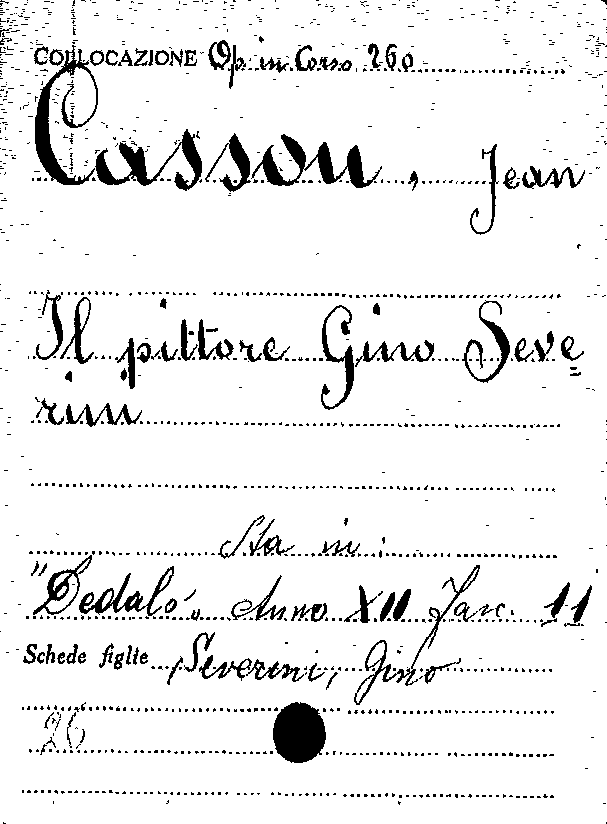 COLLOCAZIONE Op. in Corso 260
Cassou, Jean
Il pittore Gino Seve=
rini
Sta in:
"Dedalo„ Anno XII Fasc. 11
Schede figlie Severini, Gino
26